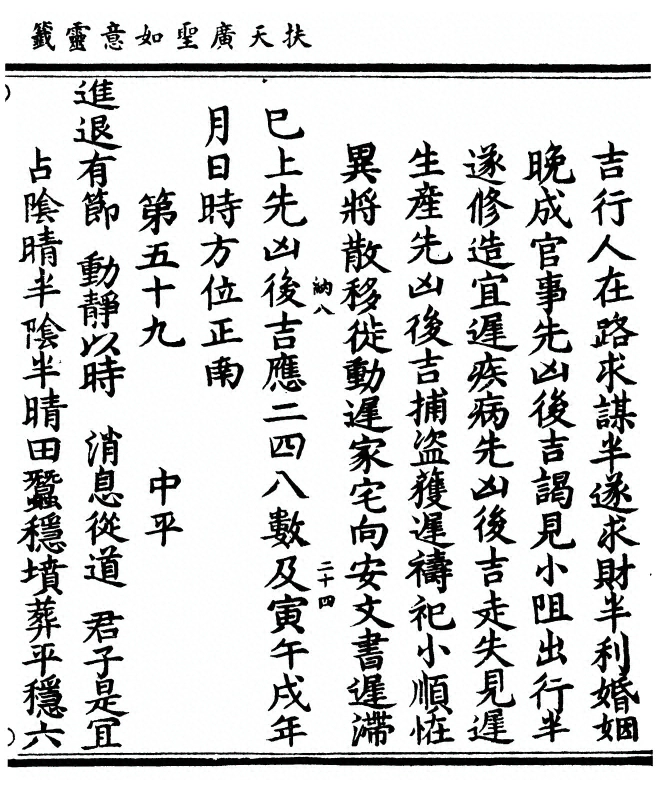 扶天廣聖如意靈籤
吉行人在路求謀半遂求財半利婚姻
晚成官事先凶後吉謁見小阻出行半
遂修造宜遲疾病先凶後吉走失見遲
生產先凶後吉捕盜獲遲禱祀小順恠
異將散移徙動遲家宅向安文書遲滯
訥八
二十四
已上先凶後吉應二四八數及寅午戌年
月日時方位正南
第五十九 中平
進退有節 動靜以時 消息從道 君子是宜
占陰晴半陰半晴田蠶穩墳葬平穩六